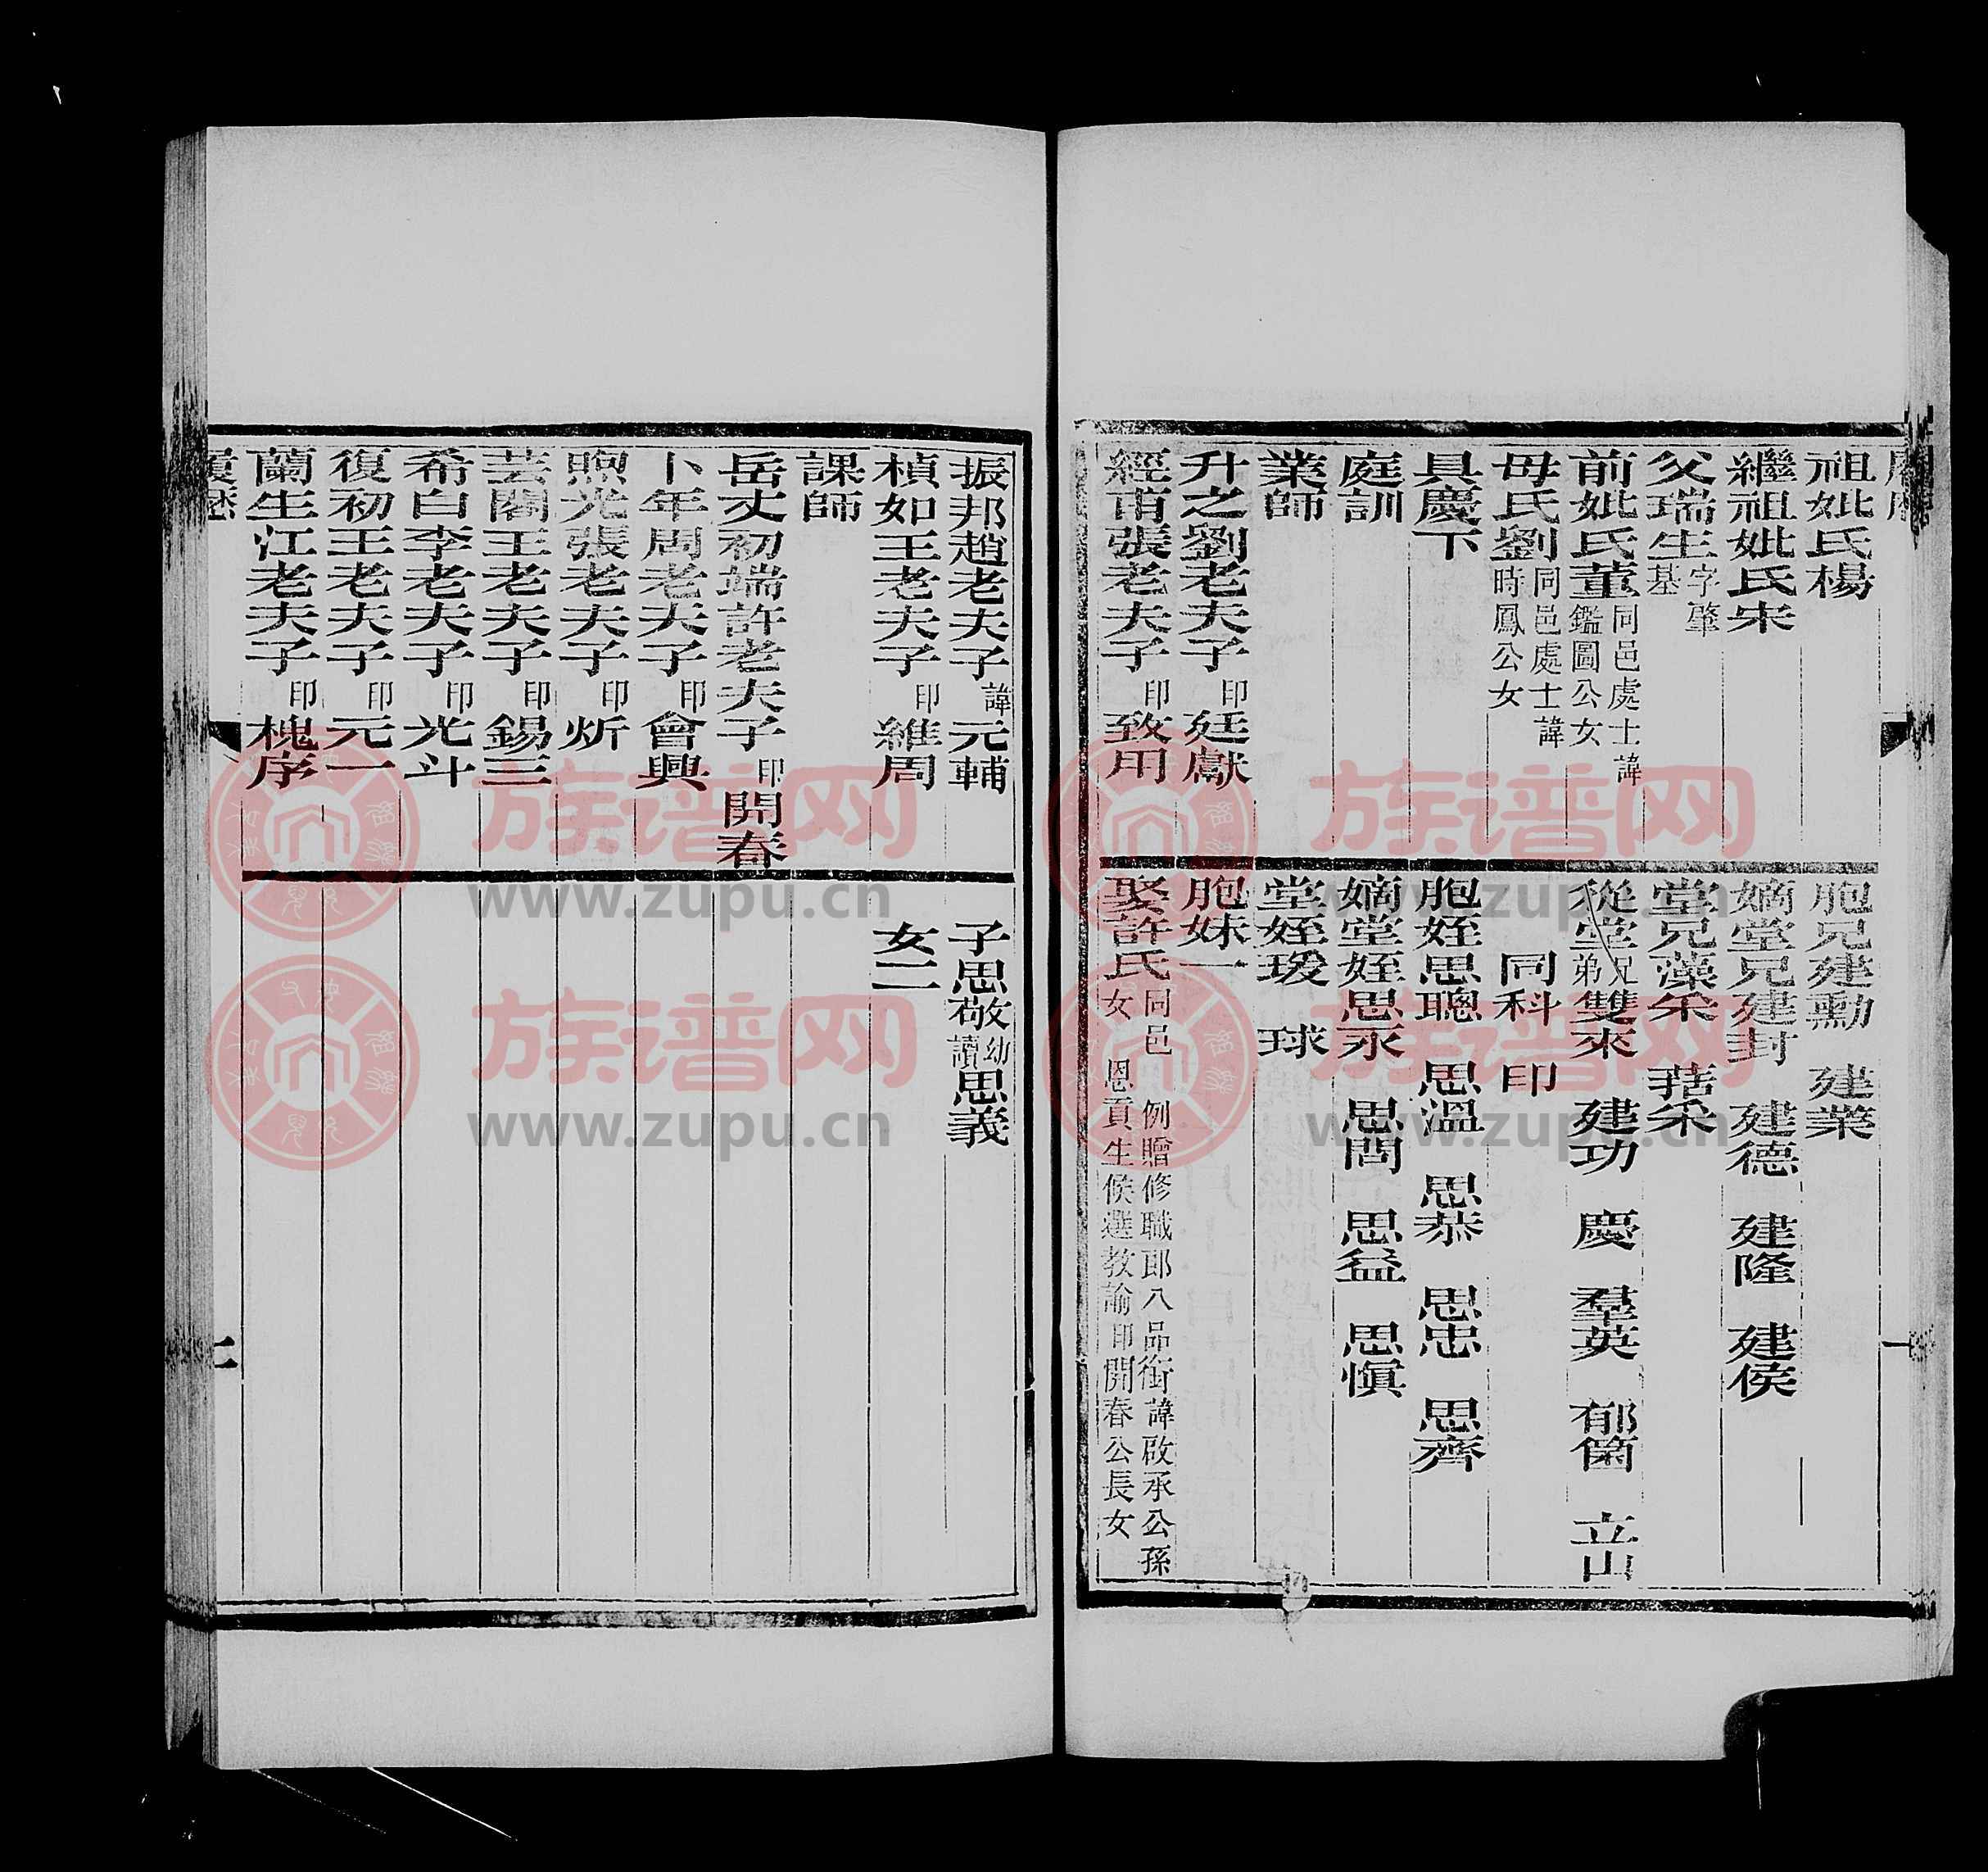 履歷
祖妣氏楊
繼祖妣氏宋
父瑞生字肇基
前妣氏董同邑處士諱鑑圖公女
母氏劉同邑處士諱時鳳公女
具慶下
庭訓
業師
升之劉老夫子印廷獻
經畬張老夫子印致用
胞兄建勳 建業
嫡堂兄建封 建德 建隆 建侯
堂兄藻采
從堂兄弟雙來 建功 慶 羣英 郁菌 立山
同科 印
胞姪思聰 思溫 思恭 思忠 思齊
嫡堂姪思永 思問 思益 思愼
堂姪瑗 球
胞妹一
娶許氏同邑 例贈修職郎八品銜諱啟承公孫女 恩貢生候選教諭印開春公長女
一
振邦趙老夫子諱元輔
楨如王老夫子印維周
課師
岳丈初端許老夫子印開春
卜年周老夫子印會興
煦光張老夫子印炘
芸閣王老夫子印錫三
希白李老夫子印光斗
復初王老夫子印元一
蘭生江老夫子印槐序
子思敬幼讀思義
女二
履歷
二
族谱网
www.zupu.cn
族谱网
www.zupu.cn
族谱网
www.zupu.cn
族谱网
www.zupu.cn